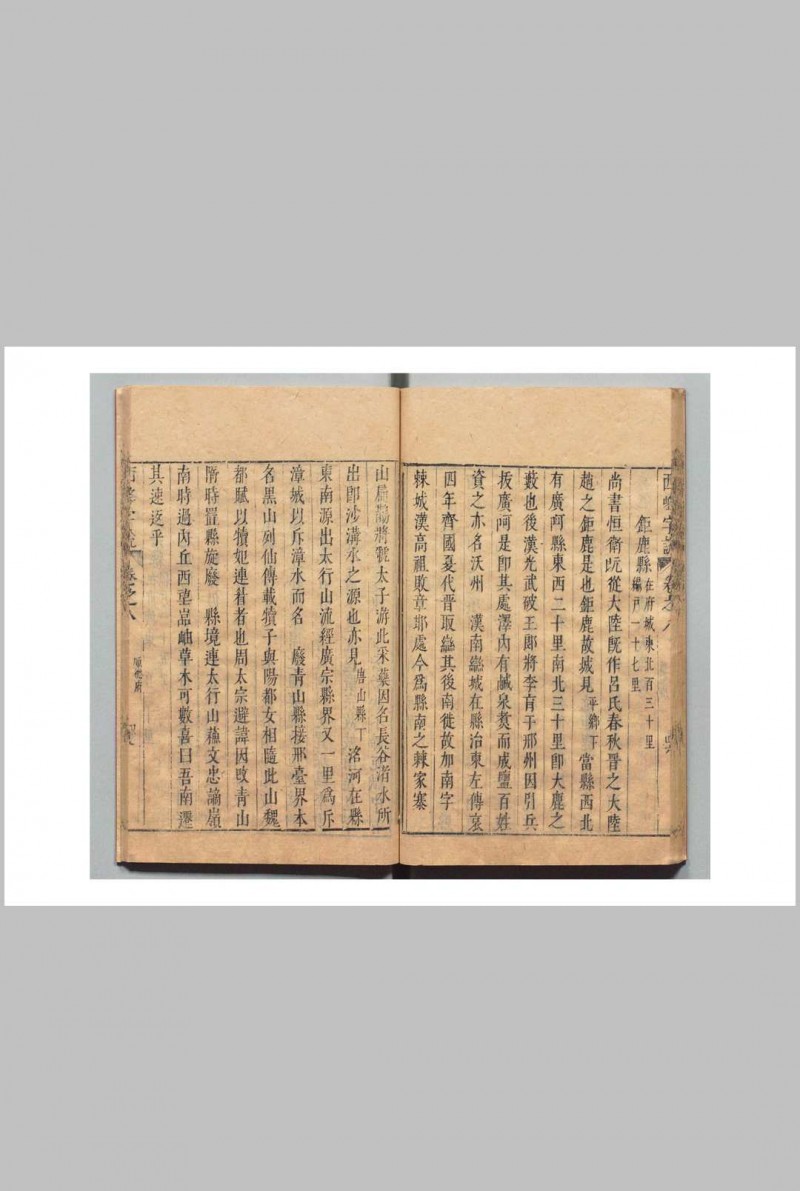 西峰字說 卷之八
鉅鹿縣 在府城東北百三十里
編戶一十七里
尚書恒衛旣從大陸旣作呂氏春秋晉之大陸
趙之鉅鹿是也鉅鹿故城見 平鄉下 當縣西北
有廣阿縣東西二十里南北三十里卽大鹿之
藪也後漢光武破王郎將李育于邢州因引兵
拔廣阿是卽其處澤內有鹹泉煑而成鹽百姓
資之亦名沃州 漢南欒城在縣治東左傳哀
四年齊國夏伐晉取欒其後南徙故加南字
棘城漢高祖敗章邯處今爲縣南之棘家寨
山扁鵲將虢太子游此采藥因名長谷渚水所
出卽沙溝水之源也亦見 唐山縣下 洺河在縣
東南源出太行山流經廣宗縣界又一里爲斥
漳城以斥漳水而名 廢青山縣接邢臺界本
名黑山列仙傳載犢子與陽都女相隨此山魏
都賦以犢妃連着者也周太宗避諱因改青山
隋時置縣旋廢 縣境連太行山蘇文忠謫嶺
南時過內丘西望岩岫草木可數喜曰吾南遷
其速返乎
西峰字說 卷之八 順德府